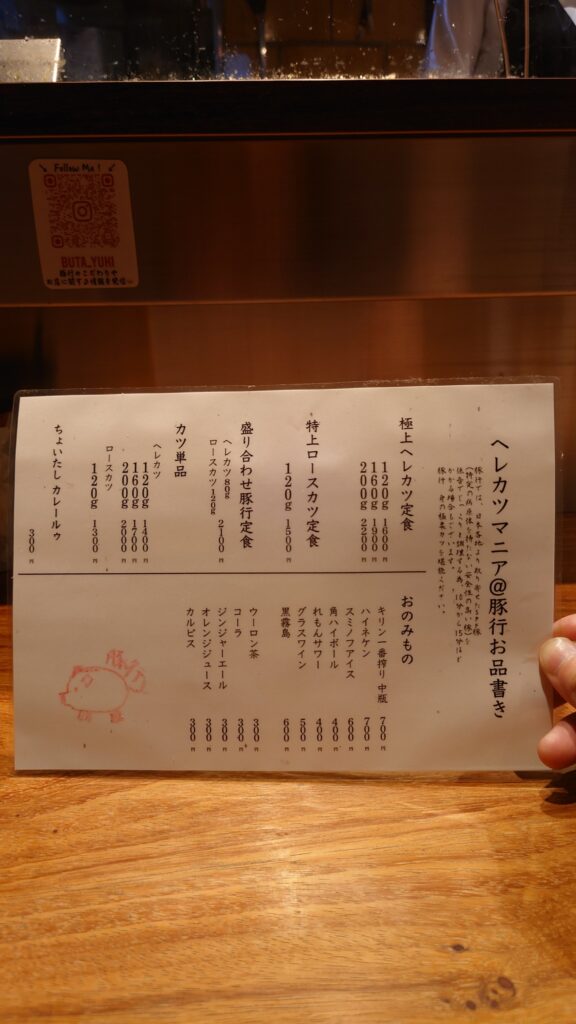 Follow Me !
BUTA_YUKI
豚行のこだわりや
お店に関する情報を発信
ヘレカツ マニア@豚行お品書き
豚行では、日本各地より取り寄せたSPF豚
(特定の病原体を持たない安全性の高い豚)を
低音でじっくりと調理する為、10分から15分ほど
かかる場合もございます。
豚行一身の極楽カツを堪能ください。
極上ヘレカツ定食
120g 1600円
160g 1900円
200g 2200円
特上ロースカツ定食
120g 1500円
盛り合わせ豚行定食
ヘレカツ 80g
ロースカツ 120g 2100円
カツ単品
ヘレカツ
120g 1400円
160g 1700円
200g 2000円
ロースカツ
120g 1300円
ちょいたし カレールゥ
300円
おのみもの
キリン一番搾り 中瓶 700円
ハイネケン 700円
スミノフアイス 600円
角ハイボール 400円
れもんサワー 400円
グラスワイン 500円
黒霧島 600円
ウーロン茶 300円
コーラ 300円
ジンジャーエール 300円
オレンジジュース 300円
カルピス 300円